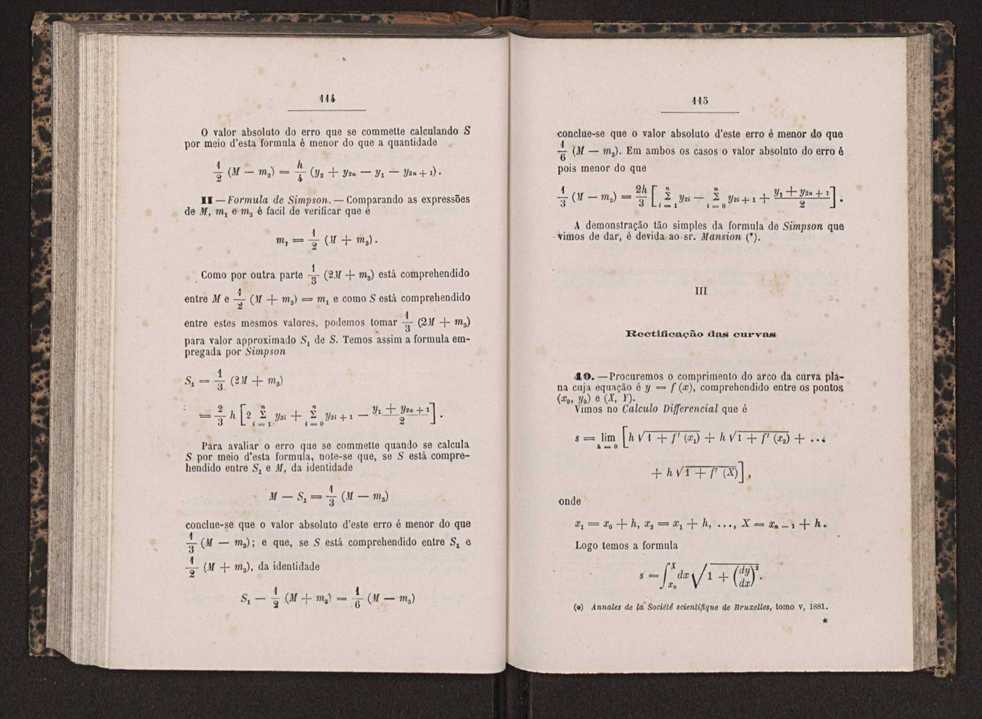 114
O valor absoluto do erro que se commette calculando S
por meio d'esta formula é menor do que a quantidade
1/2 (M — m₂) = h/4 (y₂ + y₂ₙ — y₁ — y₂ₙ₊₁).
II — Formula de Simpson. — Comparando as expressões
de M, m₁ e m₂ é facil de verificar que é
m₁ = 1/2 (M + m₂).
Como por outra parte 1/3 (2M + m₂) está comprehendido
entre M e 1/2 (M + m₂) = m₁ e como S está comprehendido
entre estes mesmos valores, podemos tomar 1/3 (2M + m₂)
para valor approximado S₁ de S. Temos assim a formula em-
pregada por Simpson
S₁ = 1/3 (2M + m₂)
= 2/3 h [2 Σ_{i=1}^{n} y₂ᵢ + Σ_{i=0}^{n} y₂ᵢ₊₁ — (y₁ + y₂ₙ₊₁)/2].
Para avaliar o erro que se commette quando se calcula
S por meio d'esta formula, note-se que, se S está compre-
hendido entre S₁ e M, da identidade
M — S₁ = 1/3 (M — m₂)
conclue-se que o valor absoluto d'este erro é menor do que
1/3 (M — m₂); e que, se S está comprehendido entre S₁ e
1/2 (M + m₂), da identidade
S₁ — 1/2 (M + m₂) = 1/6 (M — m₂)
115
conclue-se que o valor absoluto d'este erro é menor do que
1/6 (M — m₂). Em ambos os casos o valor absoluto do erro é
pois menor do que
1/3 (M — m₂) = 2h/3 [Σ_{i=1}^{n} y₂ᵢ — Σ_{i=0}^{n} y₂ᵢ₊₁ + (y₁ + y₂ₙ₊₁)/2].
A demonstração tão simples da formula de Simpson que
vimos de dar, é devida ao sr. Mansion (*).
III
Rectificação das curvas
10. — Procuremos o comprimento do arco da curva pla-
na cuja equação é y = f (x), comprehendido entre os pontos
(x₀, y₀) e (X, Y).
Vimos no Calculo Differencial que é
s = lim_{h=0} [h √(1 + f' (x₁)) + h √(1 + f' (x₂)) + ...
+ h √(1 + f' (X))],
onde
x₁ = x₀ + h, x₂ = x₁ + h, ..., X = xₙ₋₁ + h.
Logo temos a formula
s = ∫_{x₀}^{X} dx √(1 + (dy/dx)²).
(*) Annales de la Société scientifique de Bruxelles, tomo V, 1881.
*